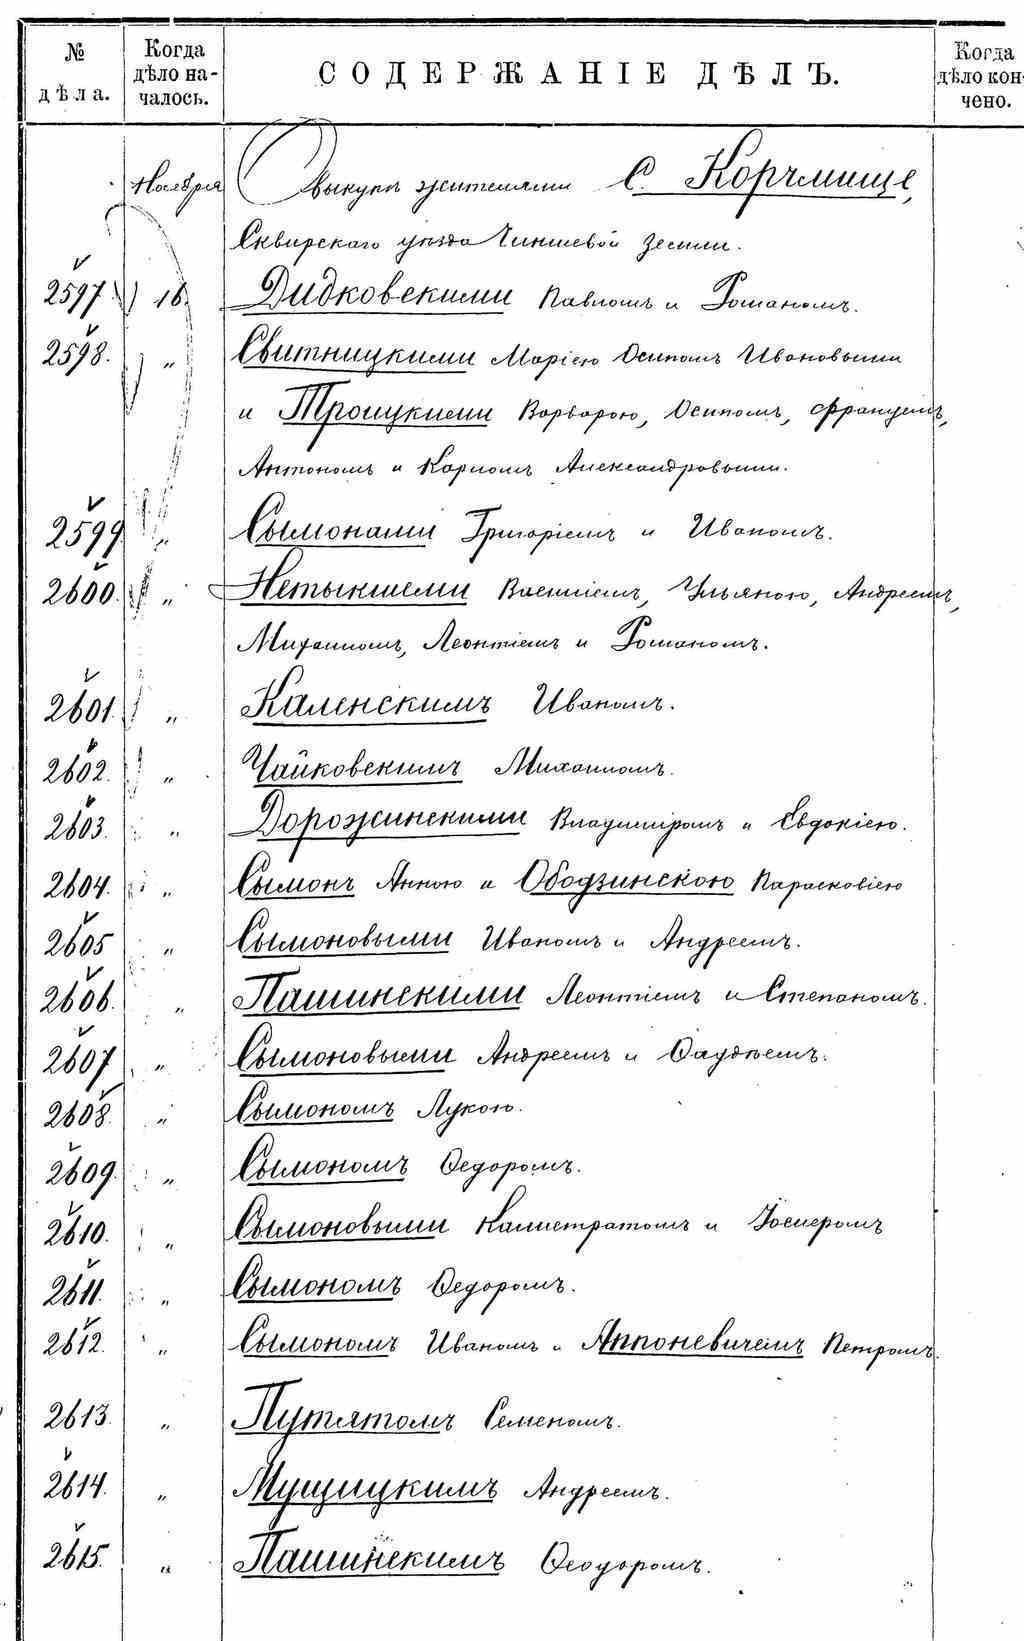 № дѣла.
Когда дѣло началось.
СОДЕРЖАНІЕ ДѢЛЪ.
Когда дѣло кончено.
Ноября О выкупѣ жителями С. Корчмище,
Сквирскаго уѣзда Чиншевой земли.
2597. 16. Дидковскими Павломъ и Романомъ.
2598. „ Свитницкими Маріею Осипомъ Ивановыми
и Троицкими Варварою, Осипомъ, Францемъ,
Антономъ и Карломъ Александровыми.
2599 „ Сымонами Григоріемъ и Иваномъ.
2600. „ Нетыкшеми Василіемъ, Ульяною, Андреемъ,
Михаиломъ, Леонтіемъ и Романомъ.
2601. „ Каленскимъ Иваномъ.
2602. „ Чайковскимъ Михаиломъ.
2603. „ Дорожинскими Владиміромъ и Евдокіею.
2604. „ Сымонъ Анною и Ободзинскою Парасковіею
2605 „ Сымоновыми Иваномъ и Андреемъ.
2606. „ Пашинскими Леонтіемъ и Степаномъ.
2607 „ Сымоновыми Андреемъ и Фаддѣемъ.
2608. „ Сымономъ Лукою.
2609. „ Сымономъ Ѳедоромъ.
2610. „ Сымоновыми Калистратомъ и
2611. „ Сымономъ Ѳедоромъ.
2612. „ Сымономъ Иваномъ и Аппоневичемъ Петромъ.
2613. „ Путятомъ Семеномъ.
2614. „ Мущицкимъ Андреемъ.
2615. „ Пашинскимъ Ѳеодоромъ.